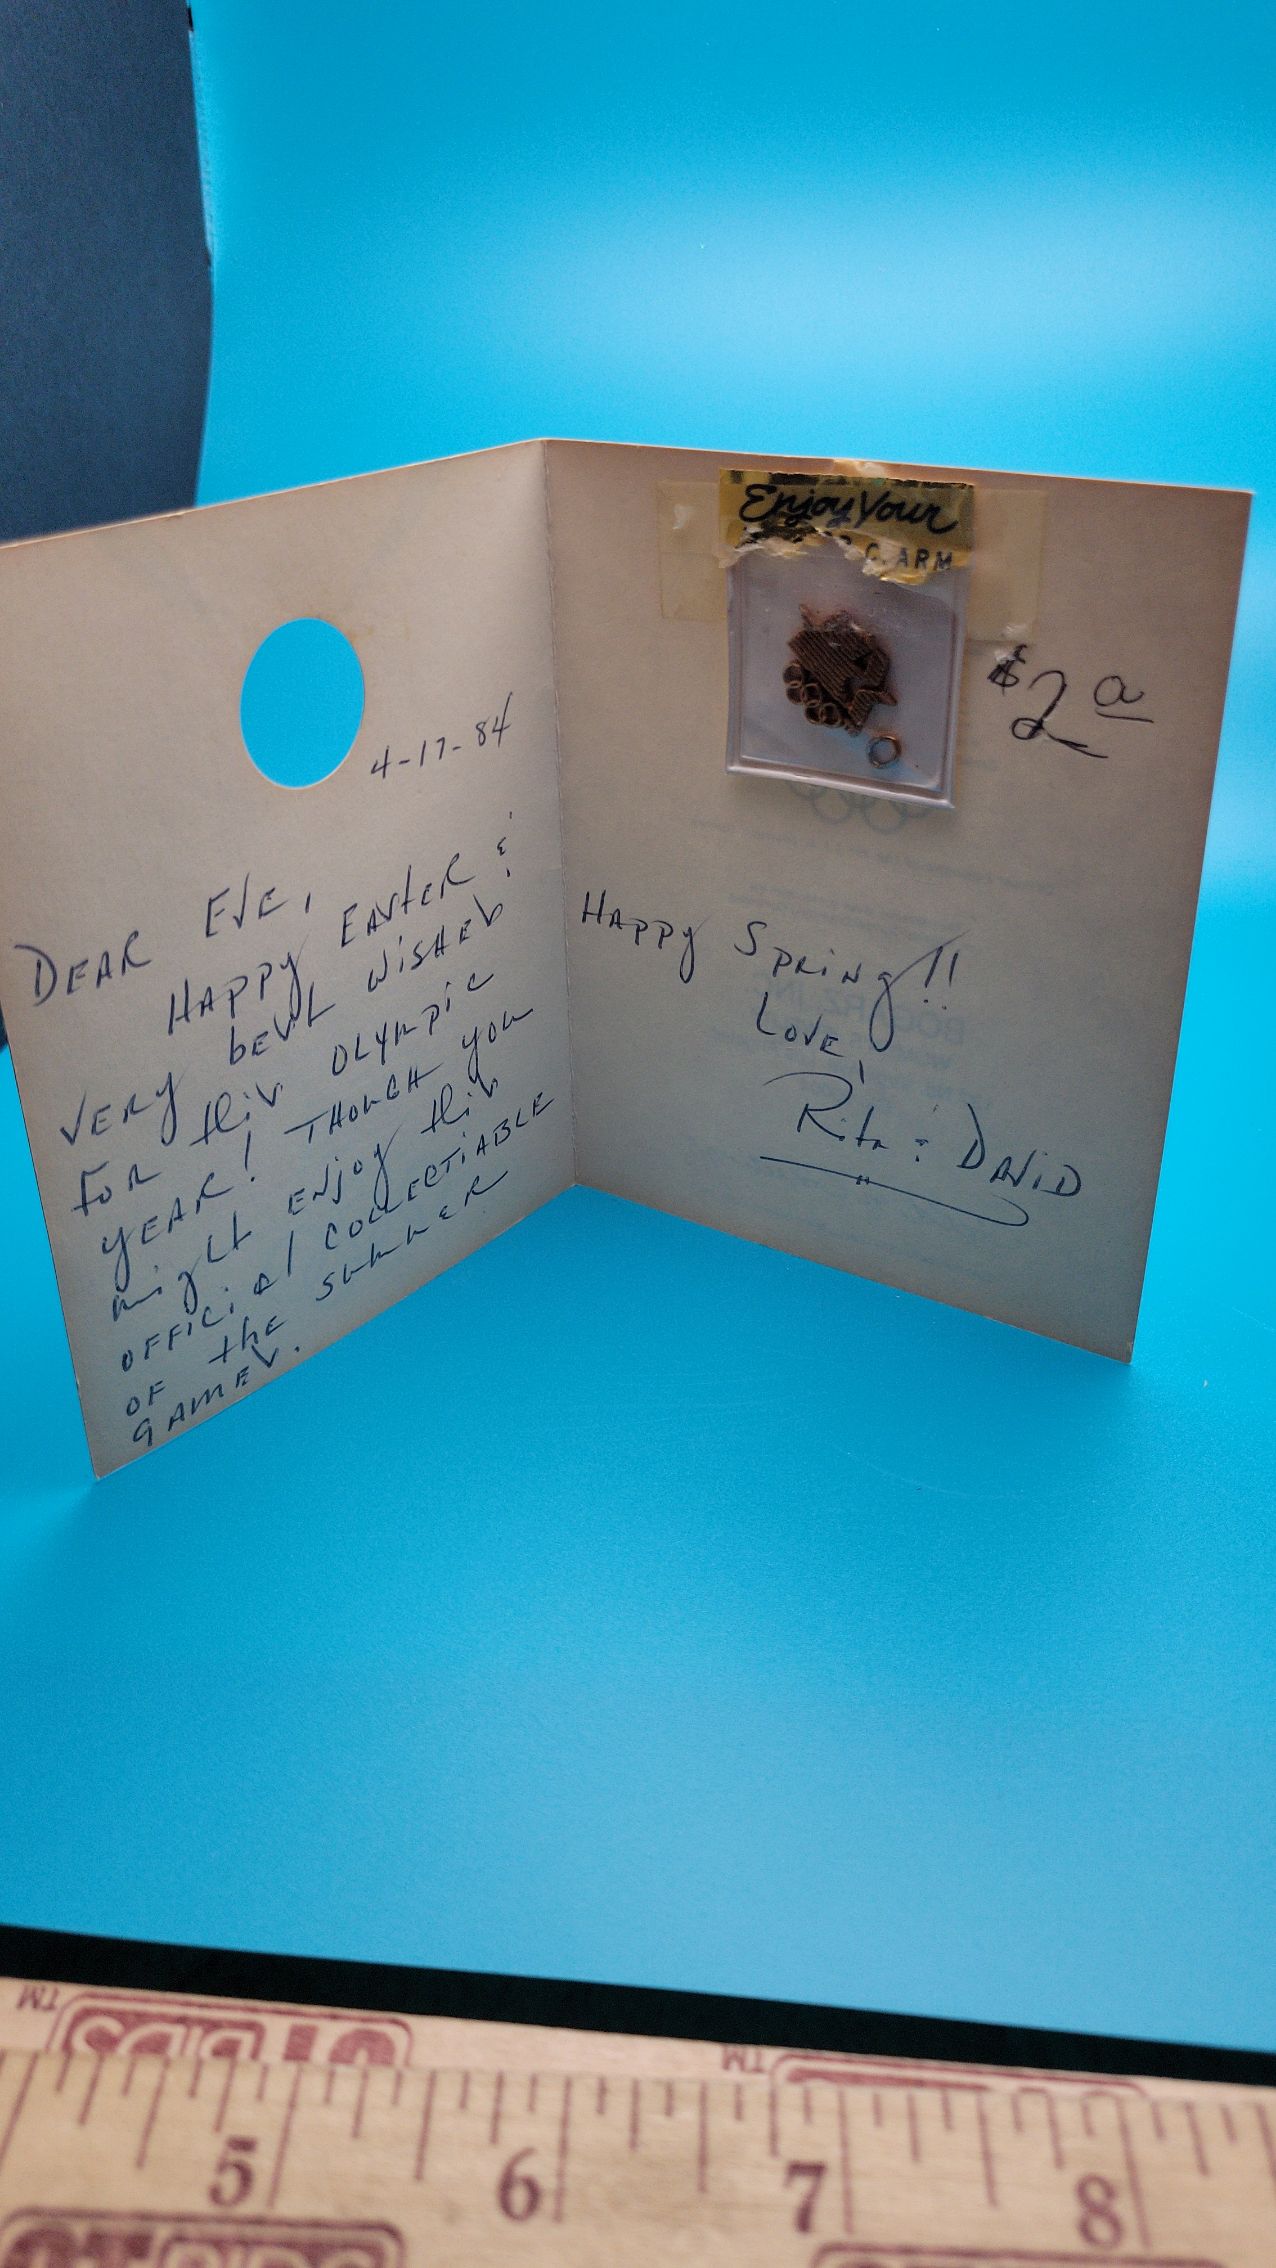 4-17-84
DEAR EVE,
HAPPY EASTER &
VERY BEST WISHES
FOR this OLYMPIC
YEAR! THOUGH you
might ENJOY this
OFFICIAL COLLECTIABLE
OF the SUMMER
GAMES.
Enjoy Your
$2
HAPPY SPRING!!
LOVE,
Rita & DAVID
TM
TM
5 6 7 8